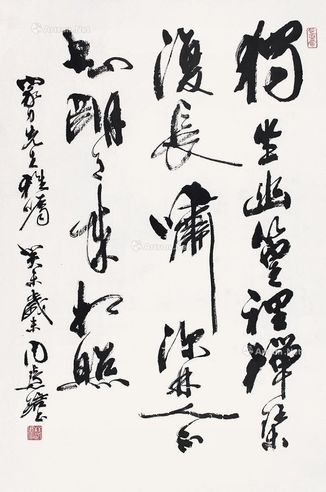 獨坐幽篁裡彈琴
復長嘯深林人不
知明月來相照
先生雅屬 癸未歲末周慧珺